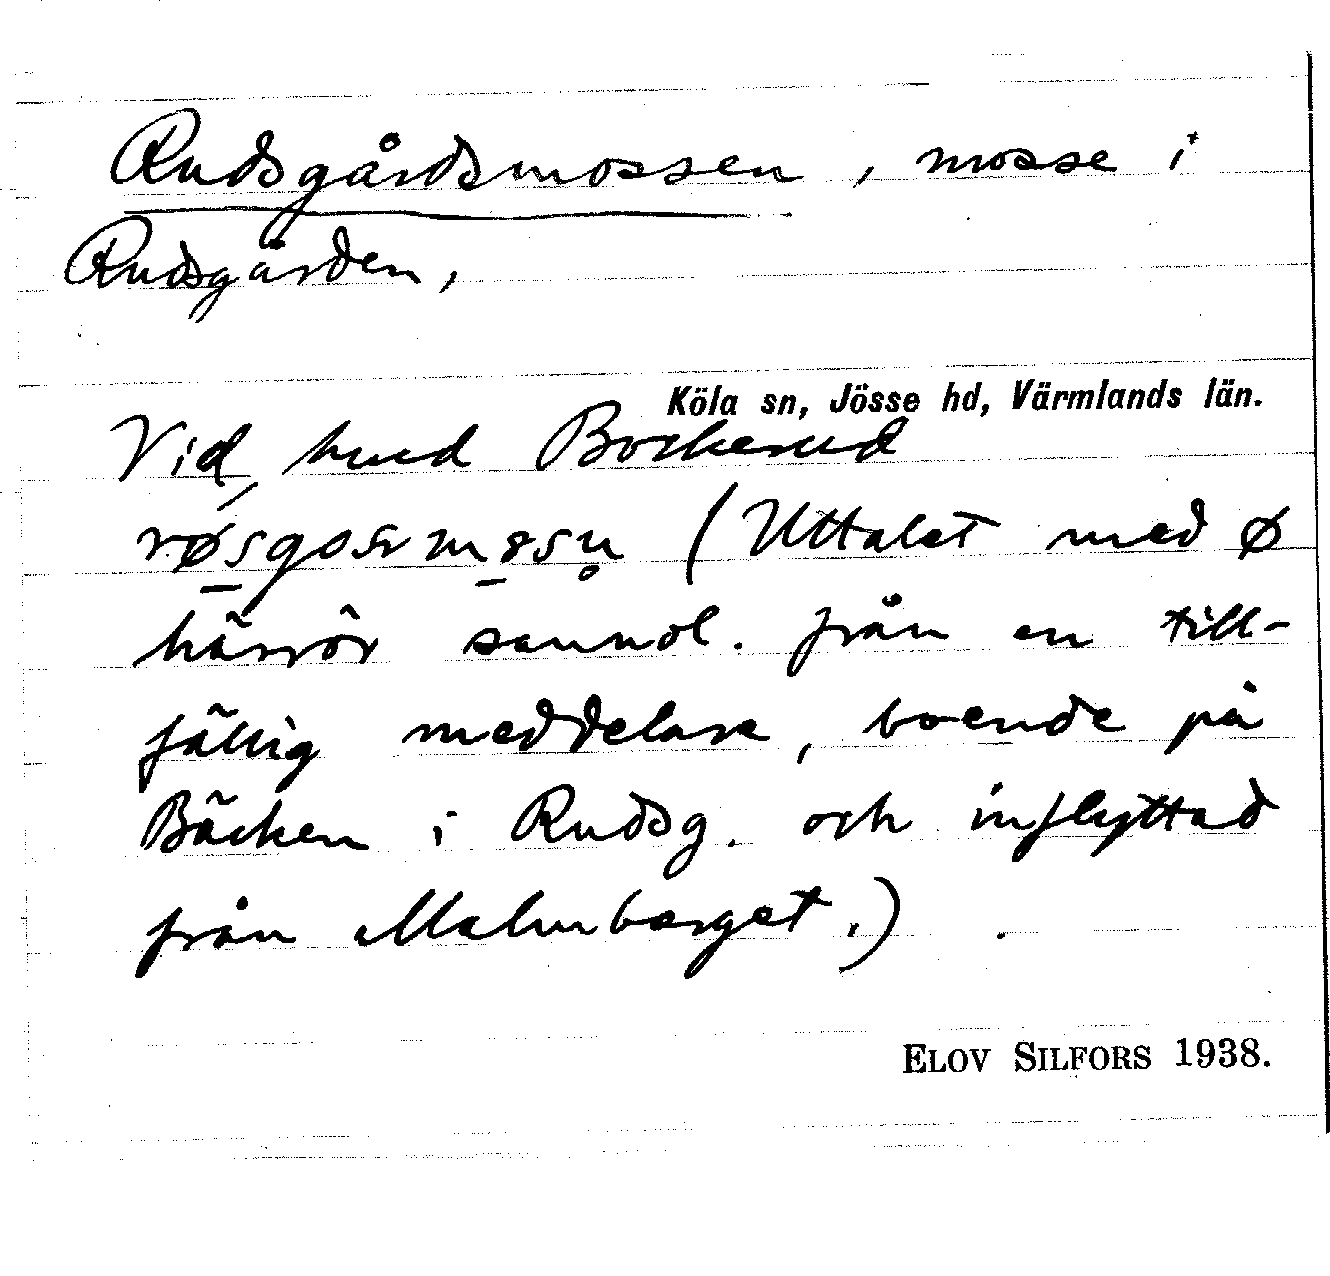 Rudsgårdsmossen, mosse i
Rudsgården,
Köla sn, Jösse hd, Värmlands län.
Vid hmd Bockerud
(Uttalet med ø
härrör sannol. från en till-
fällig meddelare, boende på
Bäcken i Rudsg. och inflyttad
från Malmberget.)
ELOV SILFORS 1938.